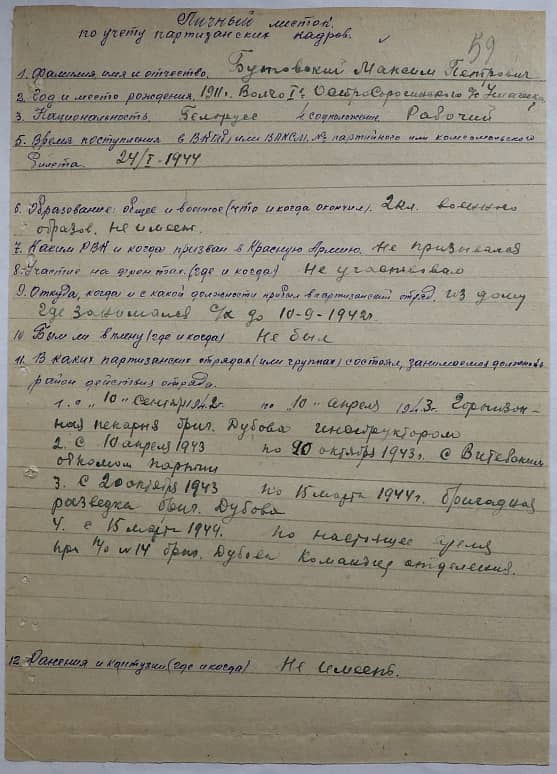 Личный листок
по учету партизанских кадров.
59
1. Фамилия, имя и отчество. Бутовский Максим Петрович
2. Год и место рождения, 1911 г.
3. Национальность. Белорусс 4 соцположение Рабочий
5. Время поступления в ВКП(б) или ВЛКСМ, № партийного или комсомольского
билета. 24/I-1944
6. Образование: общее и военное (что и когда окончил). 2 кл. военно
образов. Не имеет.
7. Каким РВК и когда призван в Красную Армию. Не призывался
8. Участие на фронтах. (где и когда) Не участвовал
9. Откуда, когда и с какой должности прибыл в партизанский отряд. из дому
где занимался с/х до 10-9-1942 г.
10 Был ли в плену (где и когда) Не был
11. В каких партизанских отрядах (или группах) состоял, занимаемая должность
район действия отряда.
1. с "10" Сентяб 1942. по "10" апреля 1943. Гарнизон-
ная пекарня бриг. Дубова инструктором
2. С 10 апреля 1943 по 20 октября 1943 г. с Витебским
обкомом партии
3. С 20 октября 1943 по 15 марта 1944 г. бригадная
разведка бриг. Дубова
4. с 15 марта 1944. по настоящее время
при п/о № 14 бриг. Дубова Командир отделения.
12. Ранения и контузии (где и когда) Не имеет.